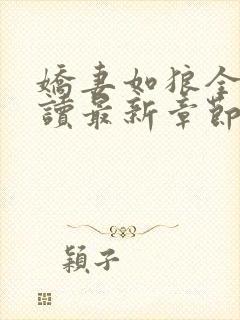 嬌妻如狼全
讀最新章節
穎子